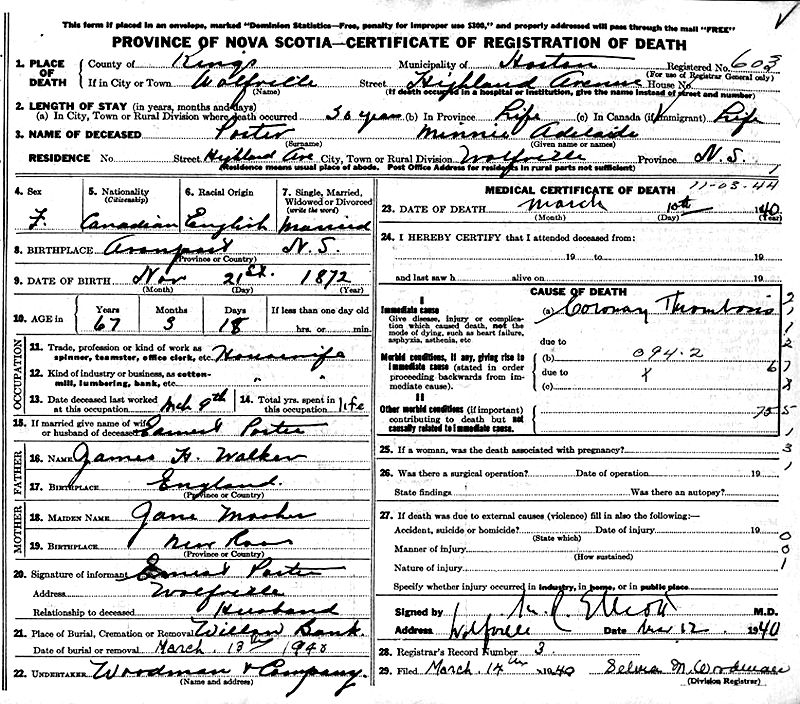 This form if placed in an envelope, marked "Dominion Statistics—Free, penalty for improper use $300," and properly addressed will pass through the mail "FREE"
PROVINCE OF NOVA SCOTIA—CERTIFICATE OF REGISTRATION OF DEATH
1. PLACE OF DEATH County of Kings Municipality of Horton Registered No. 603
(For use of Registrar General only)
If in City or Town Wolfville Street Highland Avenue House No.
(Name) (If death occurred in a hospital or institution, give the name instead of street and number)
2. LENGTH OF STAY (in years, months and days)
(a) In City, Town or Rural Division where death occurred 30 years (b) In Province Life (c) In Canada (if immigrant) Life
3. NAME OF DECEASED Porter Minnie Adelaide
(Surname) (Given name or names)
RESIDENCE No. Street Highland Ave City, Town or Rural Division Wolfville Province N.S.
(Residence means usual place of abode. Post Office Address for residents in rural parts not sufficient)
4. Sex F.
5. Nationality (Citizenship) Canadian
6. Racial Origin English
7. Single, Married, Widowed or Divorced (write the word) Married
8. BIRTHPLACE Avonport N.S.
(Province or Country)
9. DATE OF BIRTH Nov 21st. 1872
(Month) (Day) (Year)
10. AGE in Years 67 Months 3 Days 18 If less than one day old hrs. or min.
OCCUPATION
11. Trade, profession or kind of work as spinner, teamster, office clerk, etc. Housewife
12. Kind of industry or business, as cotton-mill, lumbering, bank, etc. " "
13. Date deceased last worked at this occupation Mch 9th 14. Total yrs. spent in this occupation life
15. If married give name of wife or husband of deceased Earnest Porter
FATHER
16. NAME James H. Walker
17. BIRTHPLACE England.
(Province or Country)
MOTHER
18. MAIDEN NAME Jane Mosher
19. BIRTHPLACE New Ross
(Province or Country)
20. Signature of informant Ernest Porter
Address Wolfville
Relationship to deceased Husband
21. Place of Burial, Cremation or Removal Willow Bank.
Date of burial or removal March 13 1940
22. UNDERTAKER Woodman & Company.
(Name and address)
MEDICAL CERTIFICATE OF DEATH 11-03-44
23. DATE OF DEATH March 10th 1940
(Month) (Day) (Year)
24. I HEREBY CERTIFY that I attended deceased from:
19 to 19
and last saw h alive on 19
CAUSE OF DEATH
I
Immediate cause (a) Coronary Thrombosis
Give disease, injury or complication which caused death, not the mode of dying, such as heart failure, asphyxia, asthenia, etc.
due to
Morbid conditions, if any, giving rise to immediate cause (stated in order proceeding backwards from immediate cause).
(b) 094.2
due to
(c)
II
Other morbid conditions (if important) contributing to death but not causally related to immediate cause.
25. If a woman, was the death associated with pregnancy?
26. Was there a surgical operation? Date of operation 19
State findings Was there an autopsy?
27. If death was due to external causes (violence) fill in also the following:—
Accident, suicide or homicide? Date of injury 19
(State which)
Manner of injury
(How sustained)
Nature of injury
Specify whether injury occurred in industry, in home, or in public place
Signed by Elliott M.D.
Address Wolfville Date 12 1940
28. Registrar's Record Number 3
29. Filed March 14th 1940 Selvia M. Woodman
(Division Registrar)